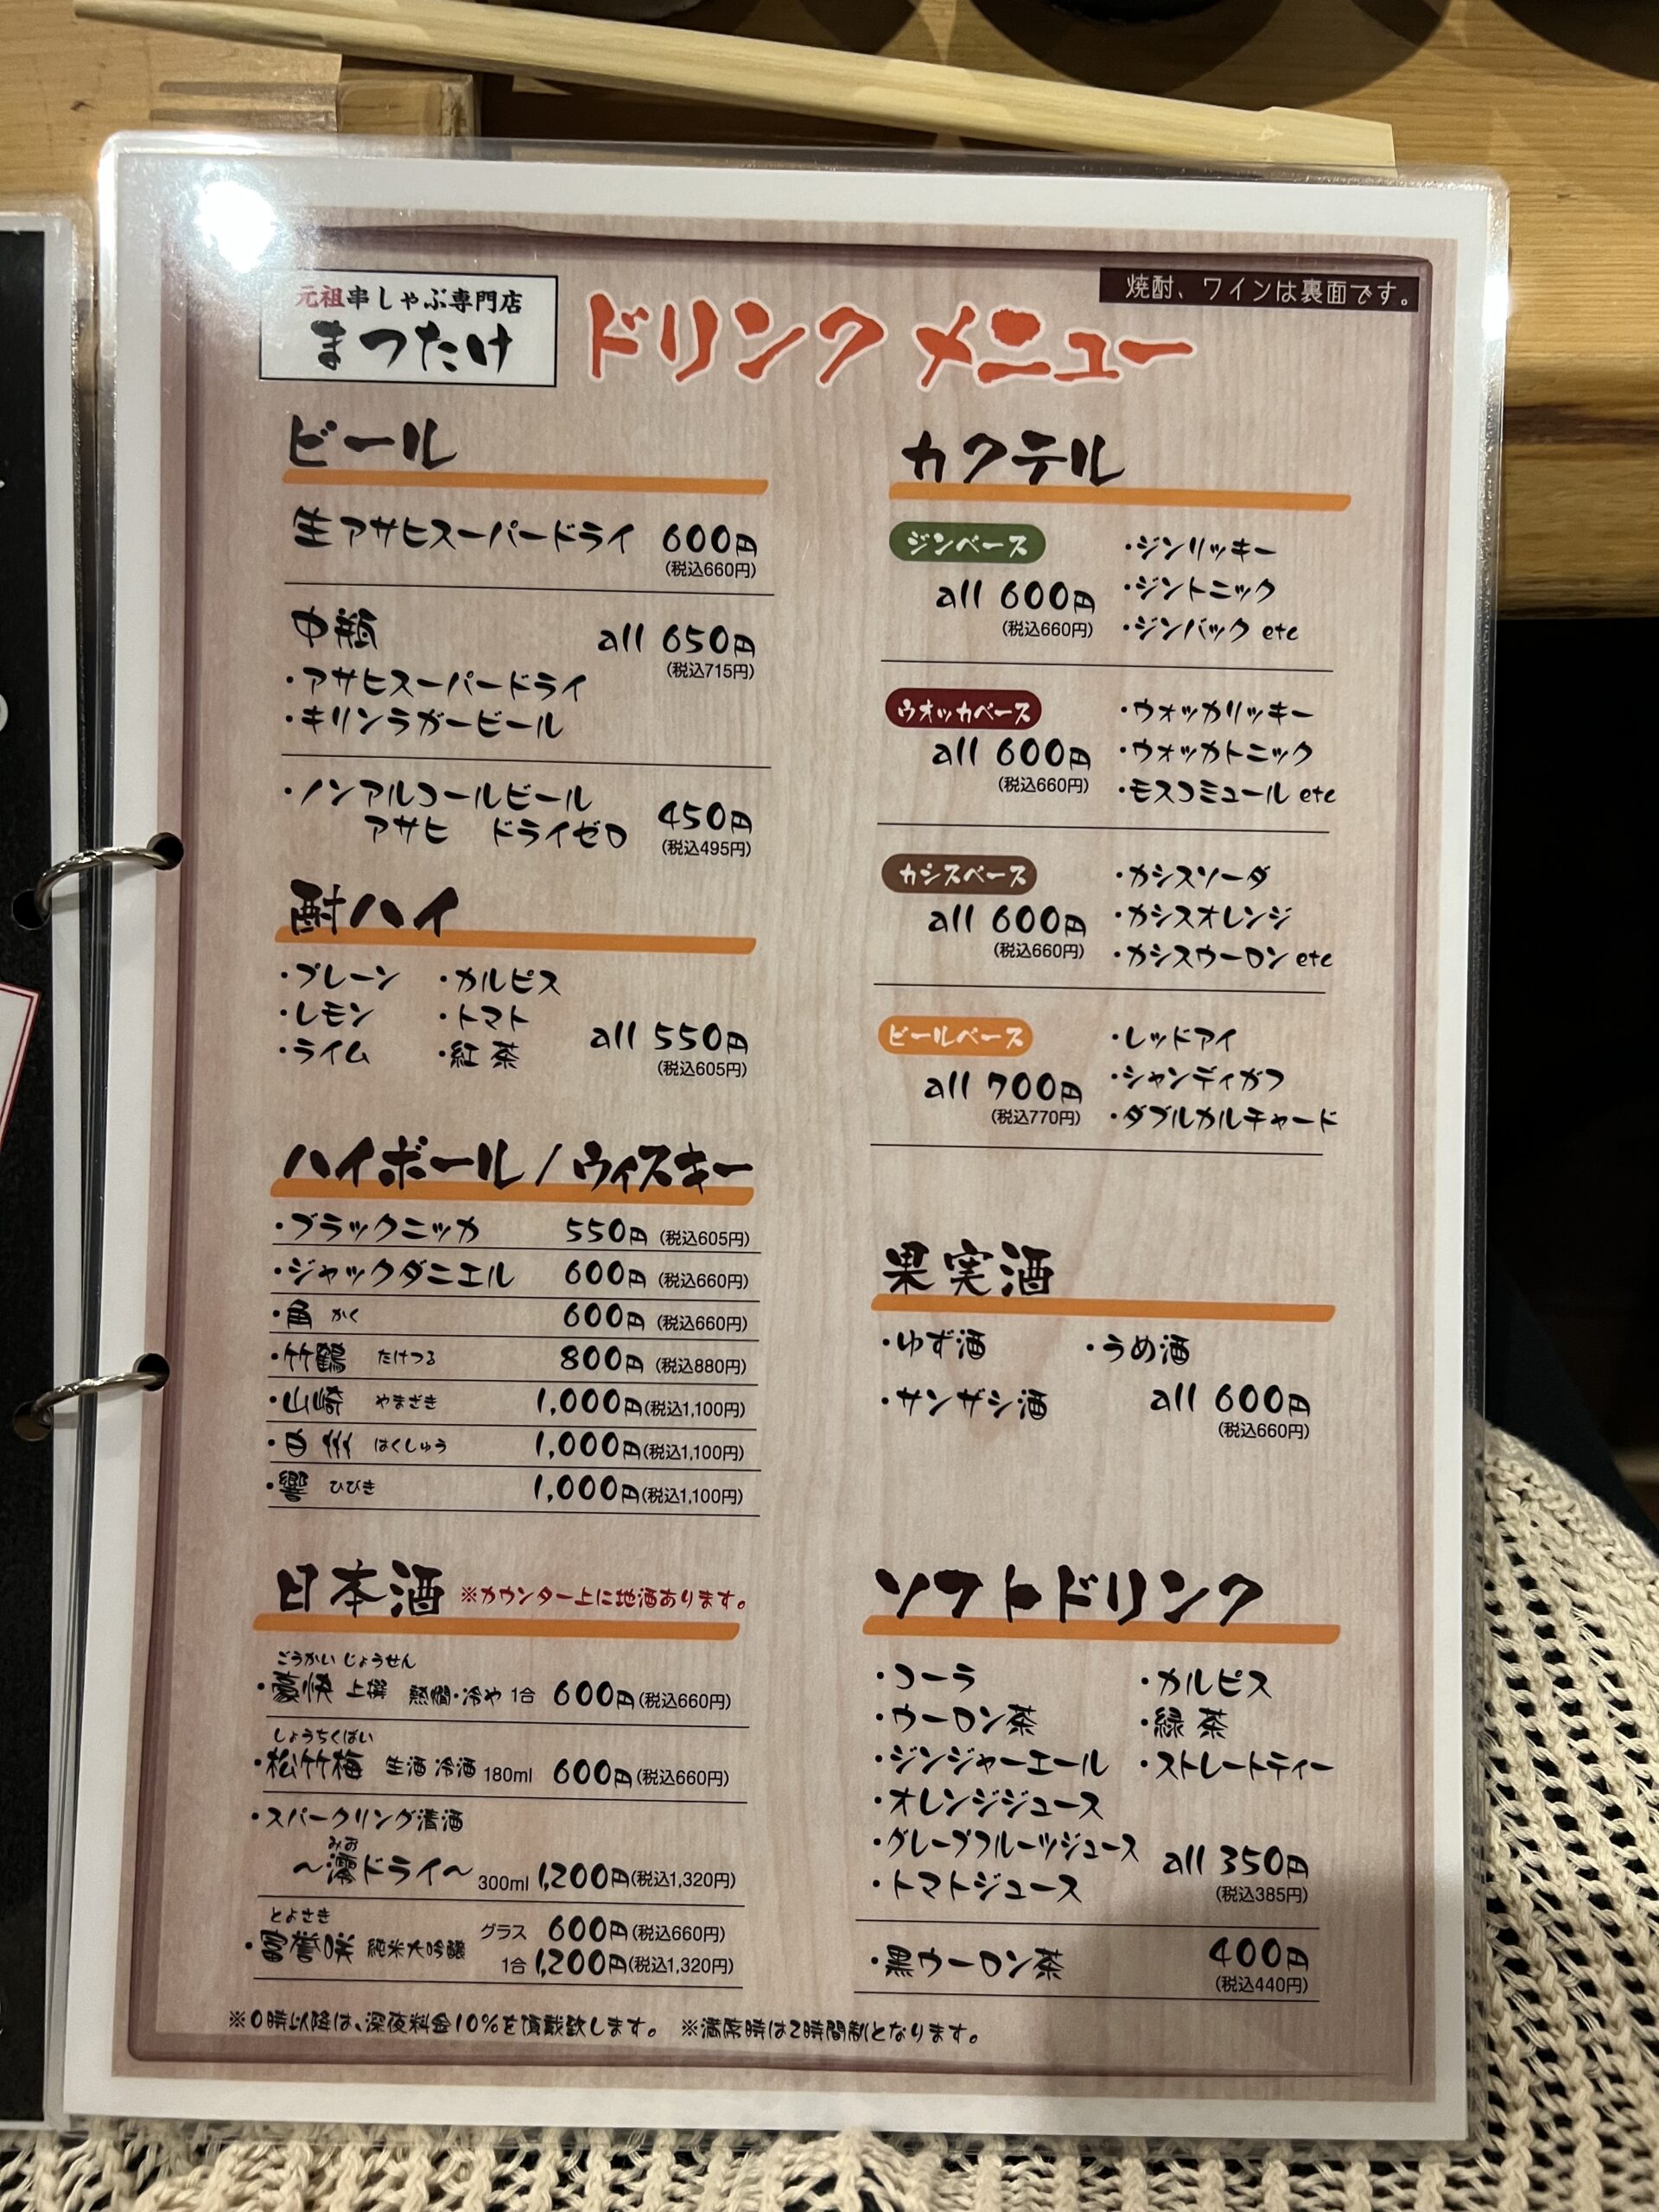 元祖串しゃぶ専門店
まつたけ
ドリンクメニュー
焼酎、ワインは裏面です。
ビール
生アサヒスーパードライ 600円
(税込660円)
中瓶 all 650円
(税込715円)
・アサヒスーパードライ
・キリンラガービール
・ノンアルコールビール
アサヒ ドライゼロ 450円
(税込495円)
酎ハイ
・プレーン ・カルピス
・レモン ・トマト
・ライム ・紅茶 all 550円
(税込605円)
ハイボール/ウィスキー
・ブラックニッカ 550円(税込605円)
・ジャックダニエル 600円(税込660円)
・角 かく 600円(税込660円)
・竹鶴 たけつる 800円(税込880円)
・山崎 やまざき 1,000円(税込1,100円)
・白州 はくしゅう 1,000円(税込1,100円)
・響 ひびき 1,000円(税込1,100円)
日本酒 ※カウンター上に地酒あります。
ごうかい じょうせん
・豪快 上撰 熱燗・冷や 1合 600円(税込660円)
しょうちくばい
・松竹梅 生酒 冷酒 180ml 600円(税込660円)
・スパークリング清酒
みお
〜澪ドライ〜 300ml 1,200円(税込1,320円)
とよさき
・富誉咲 純米大吟醸 グラス 600円(税込660円)
1合 1,200円(税込1,320円)
カクテル
ジンベース
all 600円
(税込660円)
・ジンリッキー
・ジントニック
・ジンバック etc
ウオッカベース
all 600円
(税込660円)
・ウォッカリッキー
・ウォッカトニック
・モスコミュール etc
カシスベース
all 600円
(税込660円)
・カシスソーダ
・カシスオレンジ
・カシスウーロン etc
ビールベース
all 700円
(税込770円)
・レッドアイ
・シャンディガフ
・ダブルカルチャード
果実酒
・ゆず酒 ・うめ酒
・サンザシ酒 all 600円
(税込660円)
ソフトドリンク
・コーラ ・カルピス
・ウーロン茶 ・緑茶
・ジンジャーエール ・ストレートティー
・オレンジジュース
・グレープフルーツジュース
・トマトジュース all 350円
(税込385円)
・黒ウーロン茶 400円
(税込440円)
※0時以降は、深夜料金10%を頂戴致します。 ※満席時は2時間制となります。